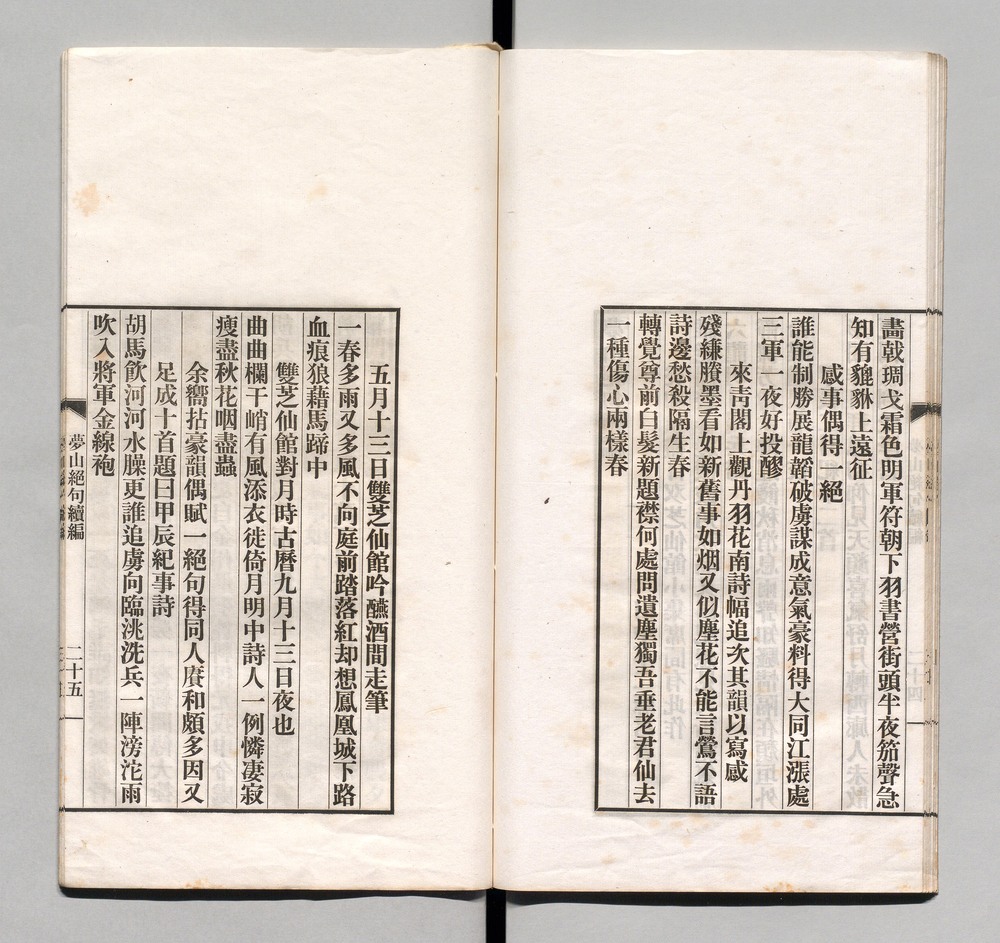 畵戟琱戈霜色明軍符朝下羽書營街頭半夜笳聲急
知有貔貅上遠征
感事偶得一絕
誰能制勝展龍韜破虜謀成意氣豪料得大同江漲處
三軍一夜好投醪
來靑閣上觀丹羽花南詩幅追次其韻以寫感
殘縑賸墨看如新舊事如烟又似塵花不能言鶯不語
詩邊愁殺隔生春
轉覺尊前白髮新題襟何處問遺塵獨吾垂老君仙去
一種傷心兩樣春
五月十三日雙芝仙館吟醼酒間走筆
一春多雨又多風不向庭前踏落紅却想鳳凰城下路
血痕狼藉馬蹄中
雙芝仙館對月時古曆九月十三日夜也
曲曲欄干峭有風添衣徙倚月明中詩人一例憐凄寂
瘦盡秋花咽盡蟲
余嚮拈豪韻偶賦一絕句得同人賡和頗多因又
足成十首題曰甲辰紀事詩
胡馬飮河河水臊更誰追虜向臨洮洗兵一陣滂沱雨
吹入將軍金線袍
夢山絕句續編
二十五